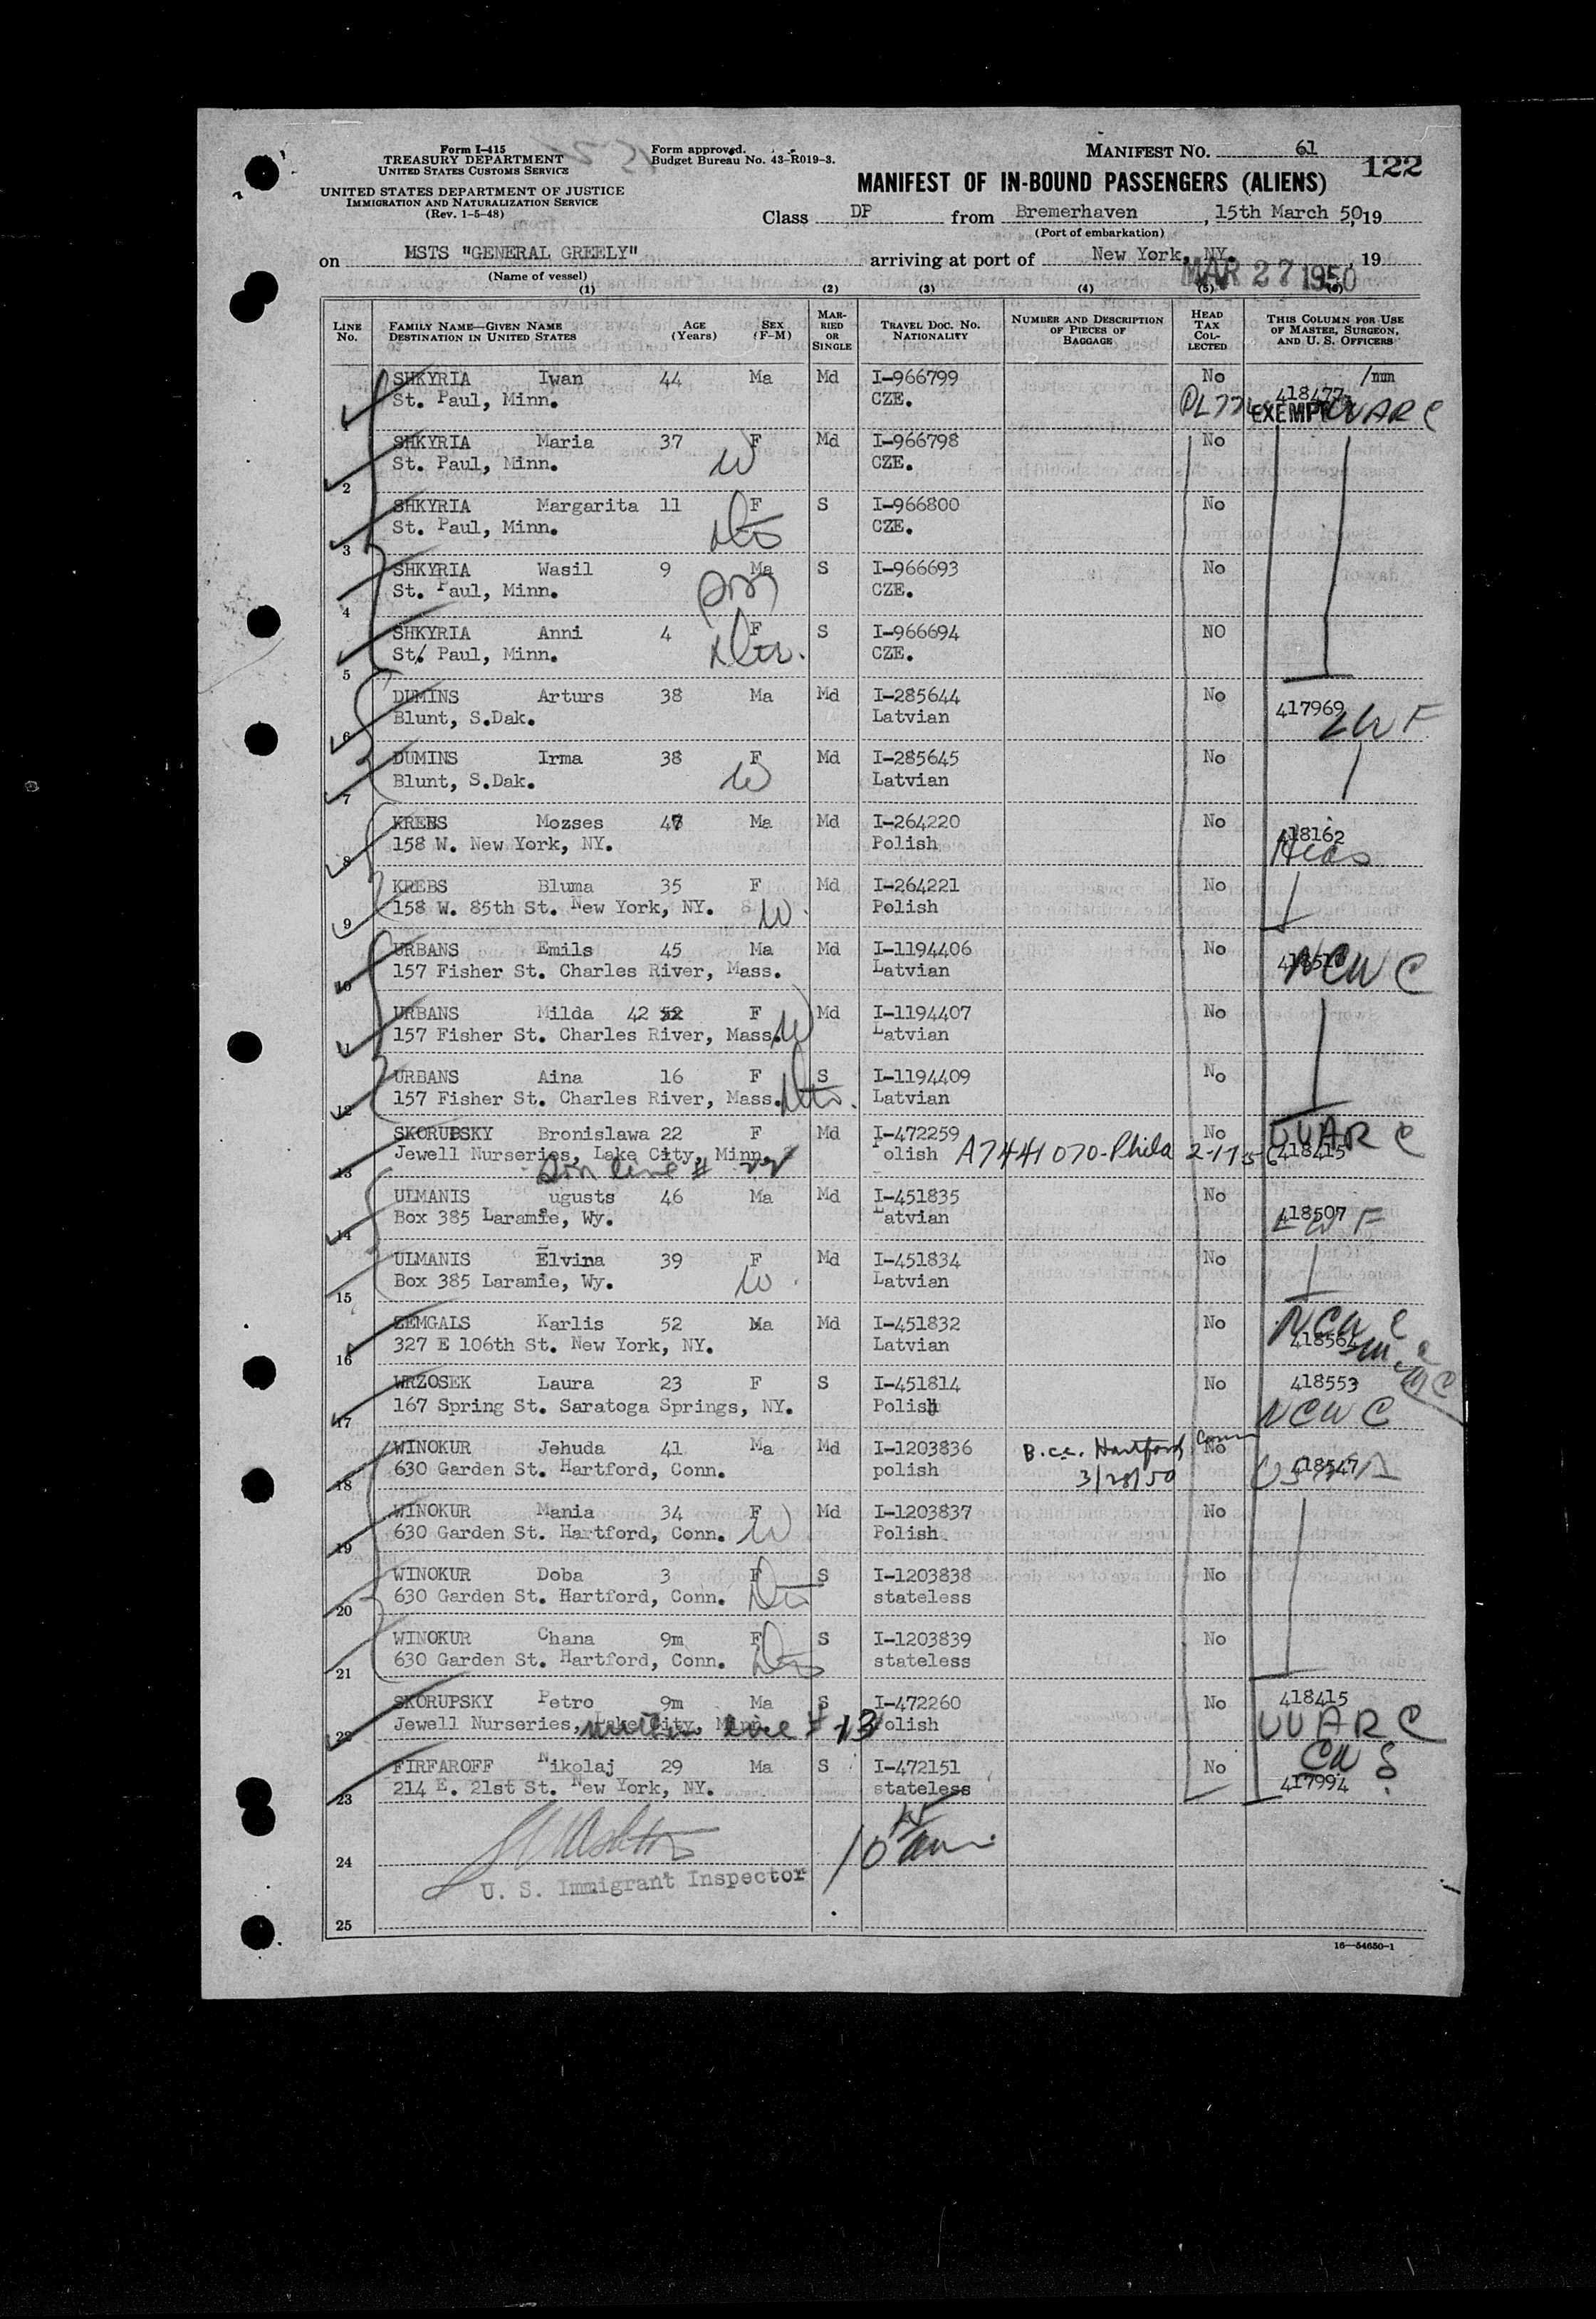 Form I-415
TREASURY DEPARTMENT
UNITED STATES CUSTOMS SERVICE
UNITED STATES DEPARTMENT OF JUSTICE
IMMIGRATION AND NATURALIZATION SERVICE
(Rev. 1-5-48)
Form approved.
Budget Bureau No. 43-R019-3.
MANIFEST No. 61
122
MANIFEST OF IN-BOUND PASSENGERS (ALIENS)
Class DP from Bremerhaven, 15th March 50, 19
(Port of embarkation)
on MSTS "GENERAL GREELY" arriving at port of New York, NY. , 19
(Name of vessel)
MAR 27 1950
(1) (2) (3) (4) (5) (6)
LINE No. FAMILY NAME—GIVEN NAME DESTINATION IN UNITED STATES AGE (Years) SEX (F-M) MARRIED OR SINGLE TRAVEL DOC. NO. NATIONALITY NUMBER AND DESCRIPTION OF PIECES OF BAGGAGE HEAD TAX COLLECTED THIS COLUMN FOR USE OF MASTER, SURGEON, AND U. S. OFFICERS
1 SHKYRIA Iwan 44 Ma Md I-966799 No 418477
St. Paul, Minn. CZE. EXEMPT
2 SHKYRIA Maria 37 F Md I-966798 No
St. Paul, Minn. W CZE.
3 SHKYRIA Margarita 11 F S I-966800 No
St. Paul, Minn. CZE.
4 SHKYRIA Wasil 9 Ma S I-966693 No
St. Paul, Minn. CZE.
5 SHKYRIA Anni 4 F S I-966694 NO
St. Paul, Minn. CZE.
6 DUMINS Arturs 38 Ma Md I-285644 No 417969
Blunt, S.Dak. Latvian LWF
7 DUMINS Irma 38 F Md I-285645 No
Blunt, S.Dak. W Latvian
8 KREBS Mozses 47 Ma Md I-264220 No 418162
158 W. New York, NY. Polish Hias
9 KREBS Bluma 35 F Md I-264221 No
158 W. 85th St. New York, NY. W Polish
10 URBANS Emils 45 Ma Md I-1194406 No
157 Fisher St. Charles River, Mass. Latvian NCWC
11 URBANS Milda 42 52 F Md I-1194407 No
157 Fisher St. Charles River, Mass. W Latvian
12 URBANS Aina 16 F S I-1194409 No
157 Fisher St. Charles River, Mass. Latvian
13 SKORUPSKY Bronislawa 22 F Md I-472259 No UUARC
Jewell Nurseries, Lake City, Minn. Polish A7441070-Phila 418415
Son line # 22
14 ULMANIS Augusts 46 Ma Md I-451835 No 418507
Box 385 Laramie, Wy. Latvian LWF
15 ULMANIS Elvina 39 F Md I-451834 No
Box 385 Laramie, Wy. W Latvian
16 ZEMGALS Karlis 52 Ma Md I-451832 No NCWC
327 E 106th St. New York, NY. Latvian 418564
17 WRZOSEK Laura 23 F S I-451814 No 418553
167 Spring St. Saratoga Springs, NY. Polish NCWC
18 WINOKUR Jehuda 41 Ma Md I-1203836 B.cc. Hartford Conn No 418547
630 Garden St. Hartford, Conn. polish 3/28/50
19 WINOKUR Mania 34 F Md I-1203837 No
630 Garden St. Hartford, Conn. W Polish
20 WINOKUR Doba 3 F S I-1203838 No
630 Garden St. Hartford, Conn. stateless
21 WINOKUR Chana 9m F S I-1203839 No
630 Garden St. Hartford, Conn. stateless
22 SKORUPSKY Petro 9m Ma S I-472260 No 418415
Jewell Nurseries, Lake City, Minn. Polish UUARC
line # 13
23 FIRFAROFF Nikolaj 29 Ma S I-472151 No CWS
214 E. 21st St. New York, NY. stateless 417994
24
U. S. Immigrant Inspector
25
16—54650-1